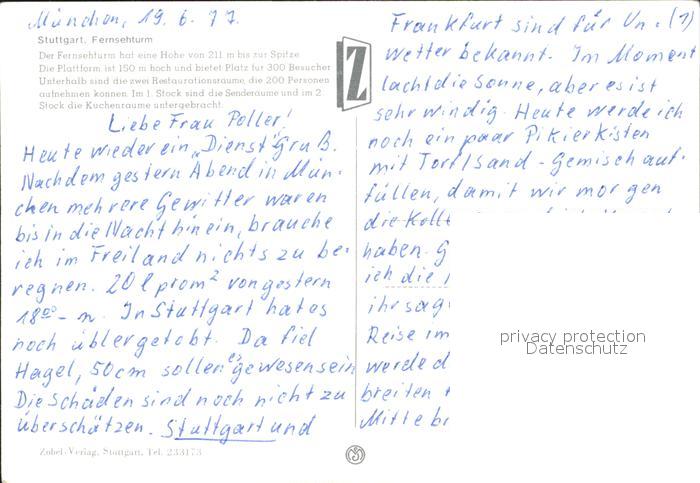 München, 19.6.77.
Stuttgart, Fernsehturm
Der Fernsehturm hat eine Höhe von 211 m bis zur Spitze
Die Plattform ist 150 m hoch und bietet Platz für 300 Besucher
Unterhalb sind die zwei Restaurationsräume, die 200 Personen
aufnehmen können. Im 1. Stock sind die Senderäume und im 2.
Stock die Küchenräume untergebracht.
Z
Liebe Frau Poller!
Heute wieder ein „Dienst"Gruß.
Nachdem gestern Abend in Mün-
chen mehrere Gewitter waren
bis in die Nacht hinein, brauche
ich im Freiland nichts zu be-
regnen. 20 l pro m² von gestern
18⁰⁰ - n. In Stuttgart hat es
noch übler getobt. Da fiel
Hagel, 50 cm sollen es gewesen sein
Die Schäden sind noch nicht zu
überschätzen. Stuttgart und
Zobel-Verlag, Stuttgart, Tel. 233173
Frankfurt sind für Un- (1)
wetter bekannt. Im Moment
lacht die Sonne, aber es ist
sehr windig. Heute werde ich
noch ein paar Pikierkisten
mit Torf/Sand-Gemisch auf-
füllen, damit wir morgen
die
haben. G
ich die
ihr sag
Reise im
werde d
breiten
Mitte b
privacy protection
Datenschutz